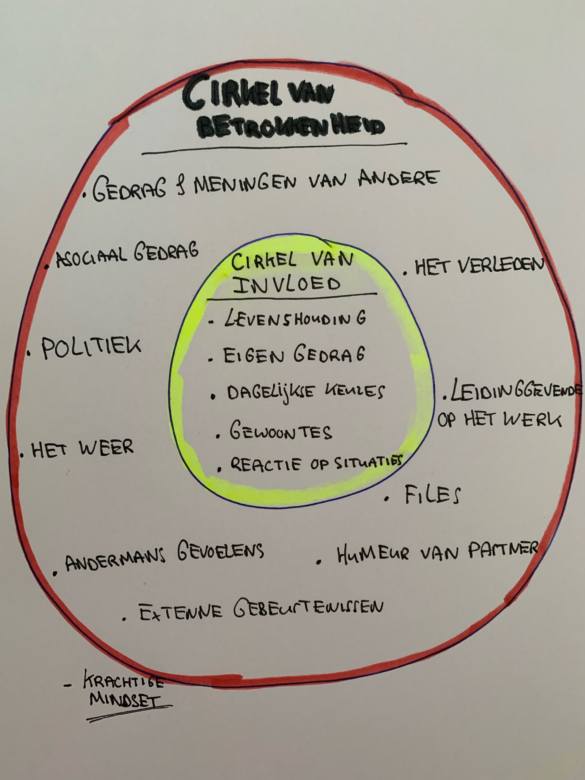 CIRKEL VAN
BETROKKENHEID
· GEDRAG & MENINGEN VAN ANDERE
· ASOCIAAL GEDRAG
· HET VERLEDEN
· POLITIEK
· LEIDINGGEVENDE
OP HET WERK
· HET WEER
· FILES
· ANDERMANS GEVOELENS
· HUMEUR VAN PARTNER
· EXTERNE GEBEURTENISSEN
CIRKEL VAN
INVLOED
- LEVENSHOUDING
· EIGEN GEDRAG
· DAGELIJKSE KEUZES
· GEWOONTES
· REACTIE OP SITUATIES
- KRACHTIGE
MINDSET